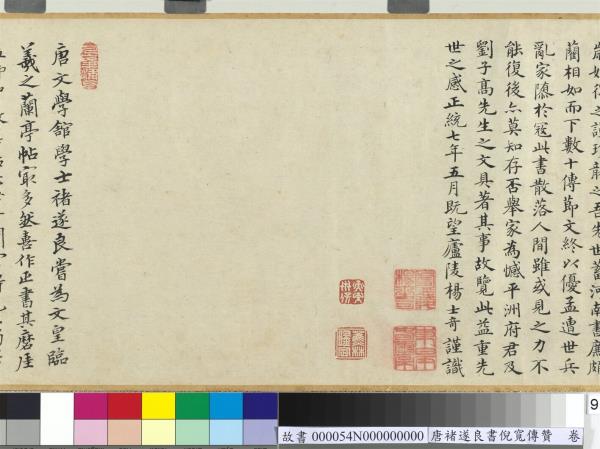 得之謹珍龍之吾先世舊河南書廉頗
藺相如而下數十傳節文終以優孟遭世兵
亂家隳於寇此書散落人間雖或見之力不
能復後亦莫知存否舉家為憾平洲府君及
劉子髙先生之文具著其事故覽此益重先
世之感正統七年五月既望廬陵楊士奇謹識
唐文學舘學士褚遂良嘗為文皇臨
羲之蘭亭帖冣多然喜作正書其磨崖
故書 000054N000000000 唐褚遂良書倪寬傳贊 卷
9